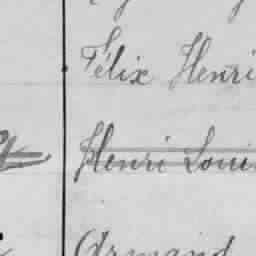 Félix Henri
Henri Loui
Armand